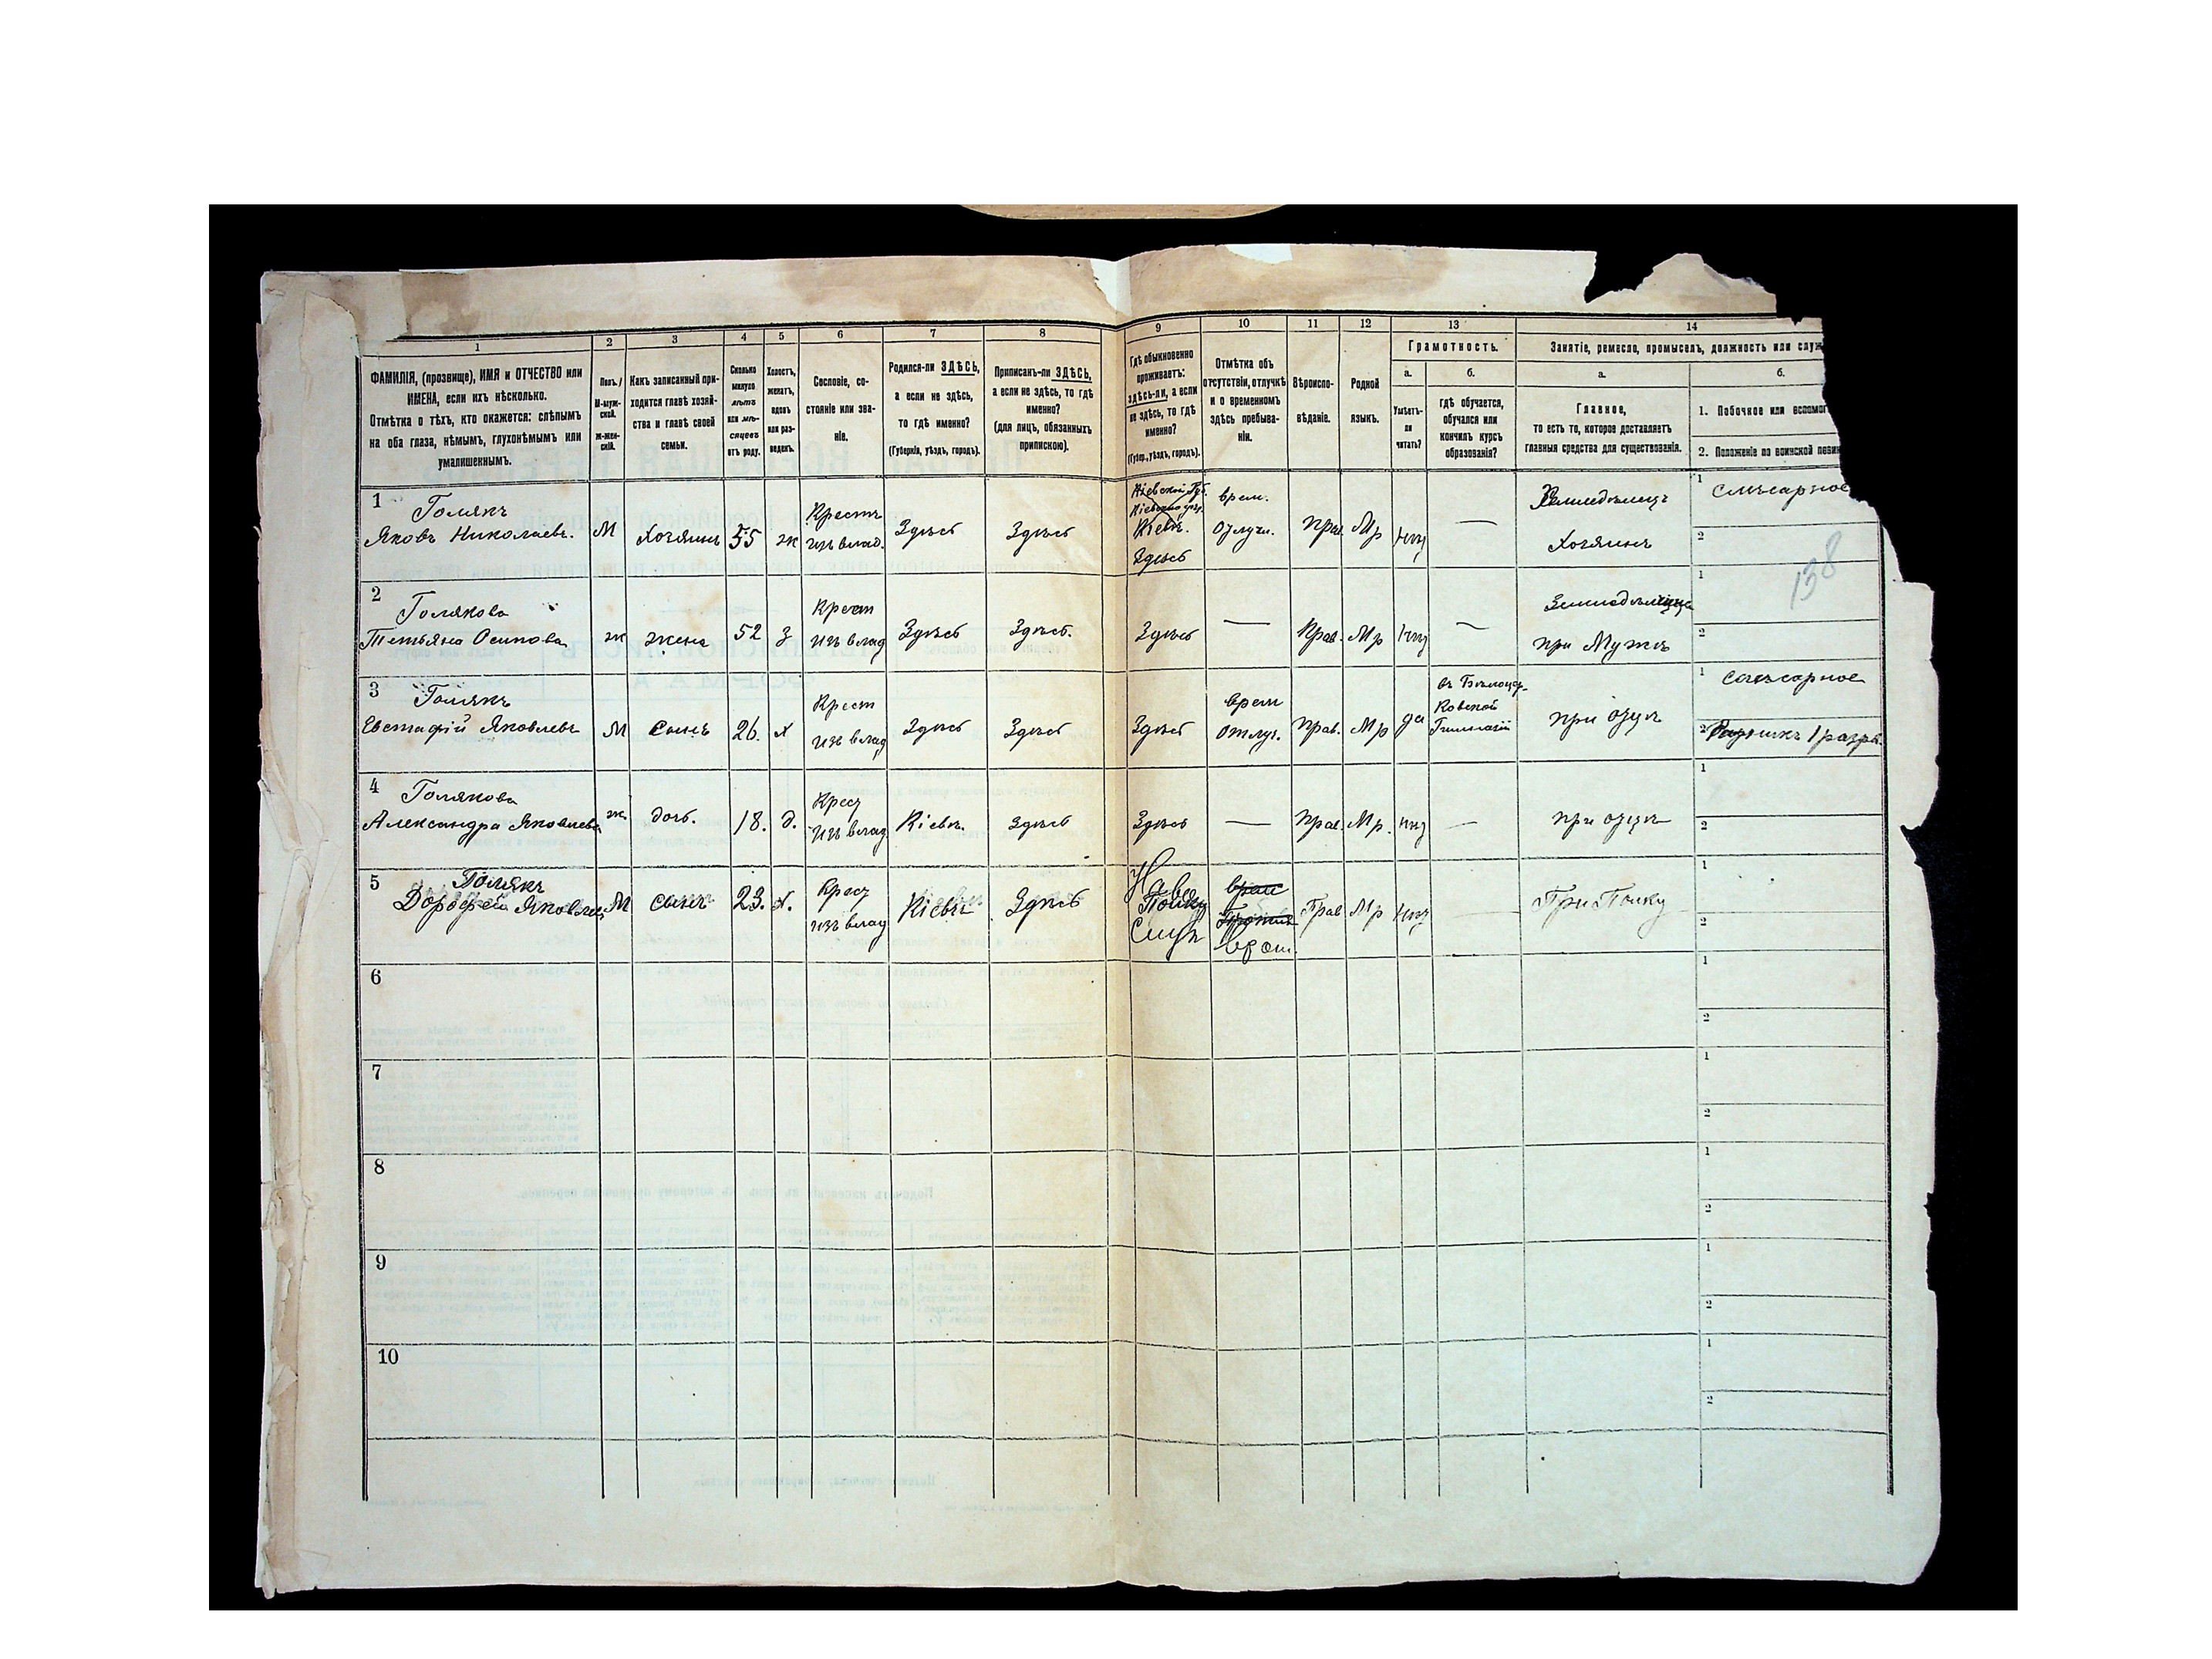 1 2 3 4 5 6 7 8 9 10 11 12 13 14
ФАМИЛІЯ, (прозвище), ИМЯ и ОТЧЕСТВО или
ИМЕНА, если ихъ нѣсколько.
Отмѣтка о тѣхъ, кто окажется: слѣпымъ
на оба глаза, нѣмымъ, глухонѣмымъ или
умалишеннымъ.
Полъ.
М-муж-
ской.
ж-жен-
скій.
Какъ записанный при-
ходится главѣ хозяй-
ства и главѣ своей
семьи.
Сколько
минуло
лѣтъ
или мѣ-
сяцевъ
отъ роду.
Холостъ,
женатъ,
вдовъ
или раз-
веденъ.
Сословіе, со-
стояніе или зва-
ніе.
Родился-ли ЗДѢСЬ,
а если не здѣсь,
то гдѣ именно?
(Губернія, уѣздъ, городъ).
Приписанъ-ли ЗДѢСЬ,
а если не здѣсь, то гдѣ
именно?
(для лицъ, обязанныхъ
припискою).
Гдѣ обыкновенно
проживаетъ:
здѣсь-ли, а если
не здѣсь, то гдѣ
именно?
(Губер., уѣздъ, городъ).
Отмѣтка объ
отсутствіи, отлучкѣ
и о временномъ
здѣсь пребыва-
ніи.
Вѣроиспо-
вѣданіе.
Родной
языкъ.
Грамотность.
а.
Умѣетъ-
ли
читать?
б.
гдѣ обучается,
обучался или
кончилъ курсъ
образованія?
Занятіе, ремесло, промыселъ, должность или служ
а.
Главное,
то есть то, которое доставляетъ
главныя средства для существованія.
б.
1. Побочное или вспомог
2. Положеніе по воинской повин
1 Голякъ
Яковъ Николаевъ.
М
Хозяинъ
55
ж
Крестъ
изъ влад.
Здѣсь
Здѣсь
Кіевской Губ.
Кіевъ.
Здѣсь
врем.
отлуч.
Прав.
Мр
нѣт
—
Земледѣлецъ
Хозяинъ
1 Слѣсарное
2
138
2 Голякова
Тетьяна Осипова
ж
жена
52
з
Крест
изъ влад
Здѣсь
Здѣсь.
Здѣсь
—
Прав.
Мр
нѣт
—
при Мужѣ
1
2
3 Голякъ
Евстафій Яковлевъ
М
Сынъ
26.
х
Крест
изъ влад
Здѣсь
Здѣсь
Здѣсь
врем
отлуч.
Прав.
Мр
да
въ Бѣлоцер-
ковской
Гимназіи
при отцѣ
1 Слѣсарное
2 Ратникъ 1 разр.
4 Голякова
Александра Яковлева
ж
дочь.
18.
д.
Крест
изъ влад
Кіевъ.
Здѣсь
Здѣсь
—
Прав.
Мр.
нѣт
—
при отцѣ
1
2
5 Голякъ
Дорофей Яковлев
М
сынъ
23.
х.
Крест
изъ влад
Кіевъ
Здѣсь
врем
врем.
Прав
Мр
нѣт
—
1
2
6
1
2
7
1
2
8
1
2
9
1
2
10
1
2